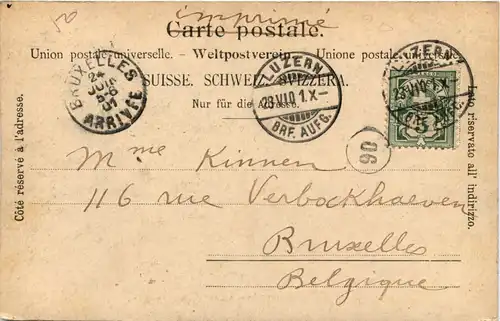 50
imprimé
Carte postale.
Union postale universelle. – Weltpostverein. – Unione postale universale.
SUISSE. SCHWEIZ. SVIZZERA.
Nur für die Adresse.
BRUXELLES
24
ARRIVÉE
LUZERN
23.VII.01.X–
BRF. AUFG.
LUZERN
23.VII.01.X–
5
90
Côté réservé à l'adresse.
Lato riservato all' indirizzo.
Mme Kinnen
116 rue Verbockhaeven
Bruxelles
Belgique